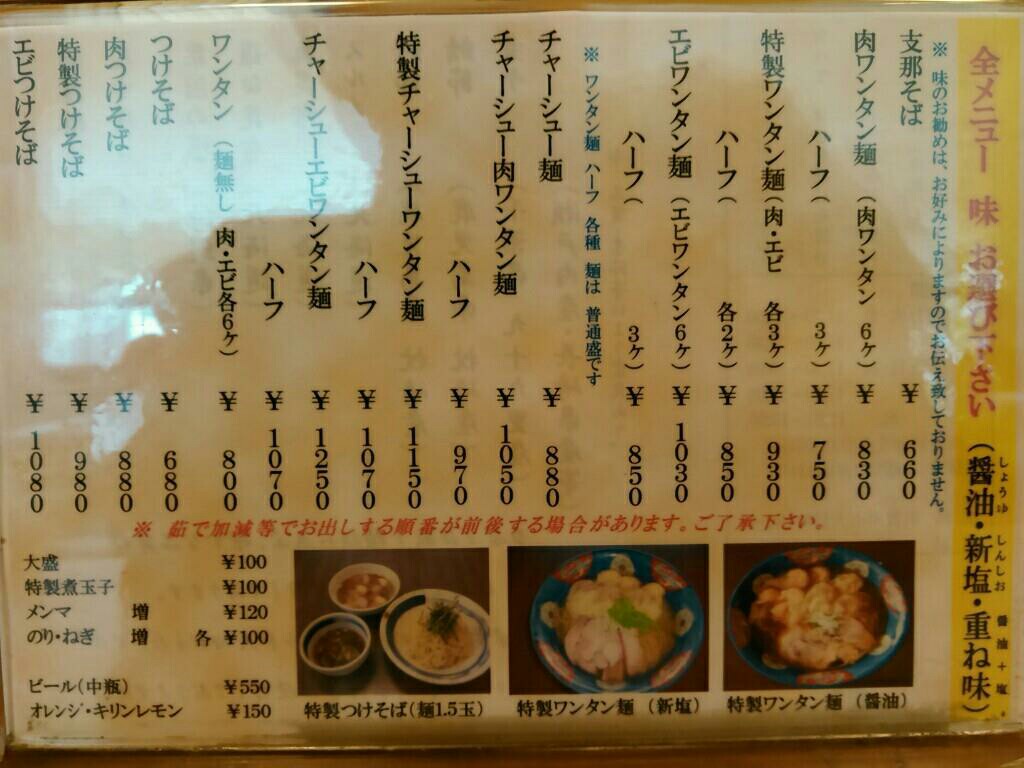 全メニュー 味 お選び下さい (醤油・新塩・重ね味)
しょうゆ しんしお 醤油+塩
※ 味のお勧めは、お好みによりますのでお伝え致しておりません。
支那そば ¥660
肉ワンタン麺 (肉ワンタン 6ヶ) ¥830
ハーフ( 3ヶ) ¥750
特製ワンタン麺(肉・エビ 各3ヶ) ¥930
ハーフ( 各2ヶ) ¥850
エビワンタン麺 (エビワンタン6ヶ) ¥1030
ハーフ( 3ヶ) ¥850
※ ワンタン麺 ハーフ 各種 麺は 普通盛です
チャーシュー麺 ¥880
チャーシュー肉ワンタン麺 ¥1050
ハーフ ¥970
特製チャーシューワンタン麺 ¥1150
ハーフ ¥1070
チャーシューエビワンタン麺 ¥1250
ハーフ ¥1070
ワンタン (麺無し 肉・エビ各6ヶ) ¥800
つけそば ¥680
肉つけそば ¥880
特製つけそば ¥980
エビつけそば ¥1080
※ 茹で加減等でお出しする順番が前後する場合があります。ご了承下さい。
大盛 ¥100
特製煮玉子 ¥100
メンマ 増 ¥120
のり・ねぎ 増 各 ¥100
ビール(中瓶) ¥550
オレンジ・キリンレモン ¥150
特製つけそば(麺1.5玉)
特製ワンタン麺 (新塩)
特製ワンタン麺 (醤油)